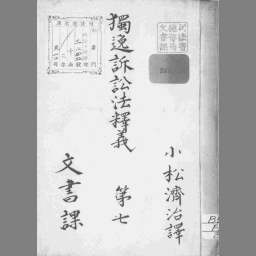 小松濟治譯
獨逸訴訟法釋義 第七
文書課